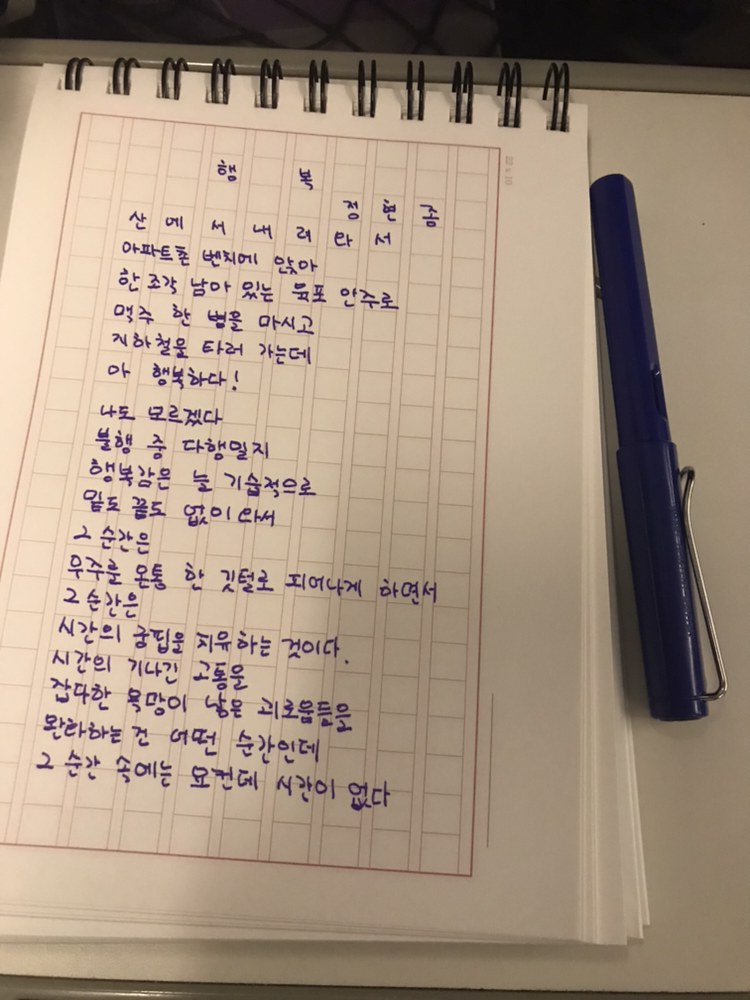 행 복
정 현 종
산 에 서 내 려 와 서
아파트촌 벤치에 앉아
한 조각 남아 있는 육포 안주로
맥주 한 병을 마시고
지하철을 타러 가는데
아 행복하다!
나도 모르겠다
불행 중 다행일지
행복감은 늘 기습적으로
밑도 끝도 없이 와서
그 순간은
우주를 온통 한 깃털로 피어나게 하면서
그 순간은
시간의 궁핍을 치유하는 것이다.
시간의 기나긴 고통을
잡다한 욕망이 낳은 괴로움들을
완화하는 건 어떤 순간인데
그 순간 속에는 요컨대 시간이 없다